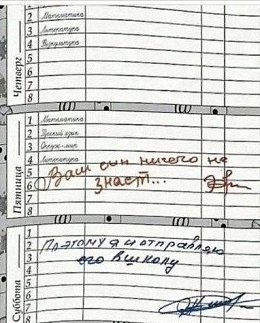 Четверг
1
2 Математика
3 Литература
4 Физкультура
5
6
7
8
Пятница
1 Математика
2 Русский язык
3 Окруж. мир
4 Литература
5 Ваш сын ничего не
6 знает...
7
8
Суббота
1
2 Поэтому я и отправляю
3 его в школу
4
5
6
7
8